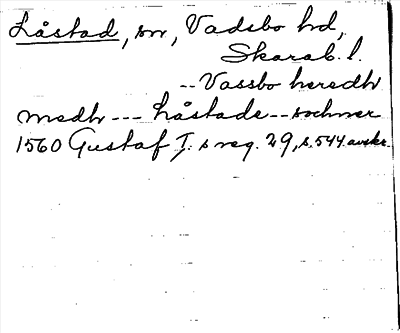 Låstad, sn, Vadsbo hd,
Skarab. l.
-- Vassbo heredh
medh --- Låstade -- sochner
1560 Gustaf I:s reg. 29, s. 544 avskr.